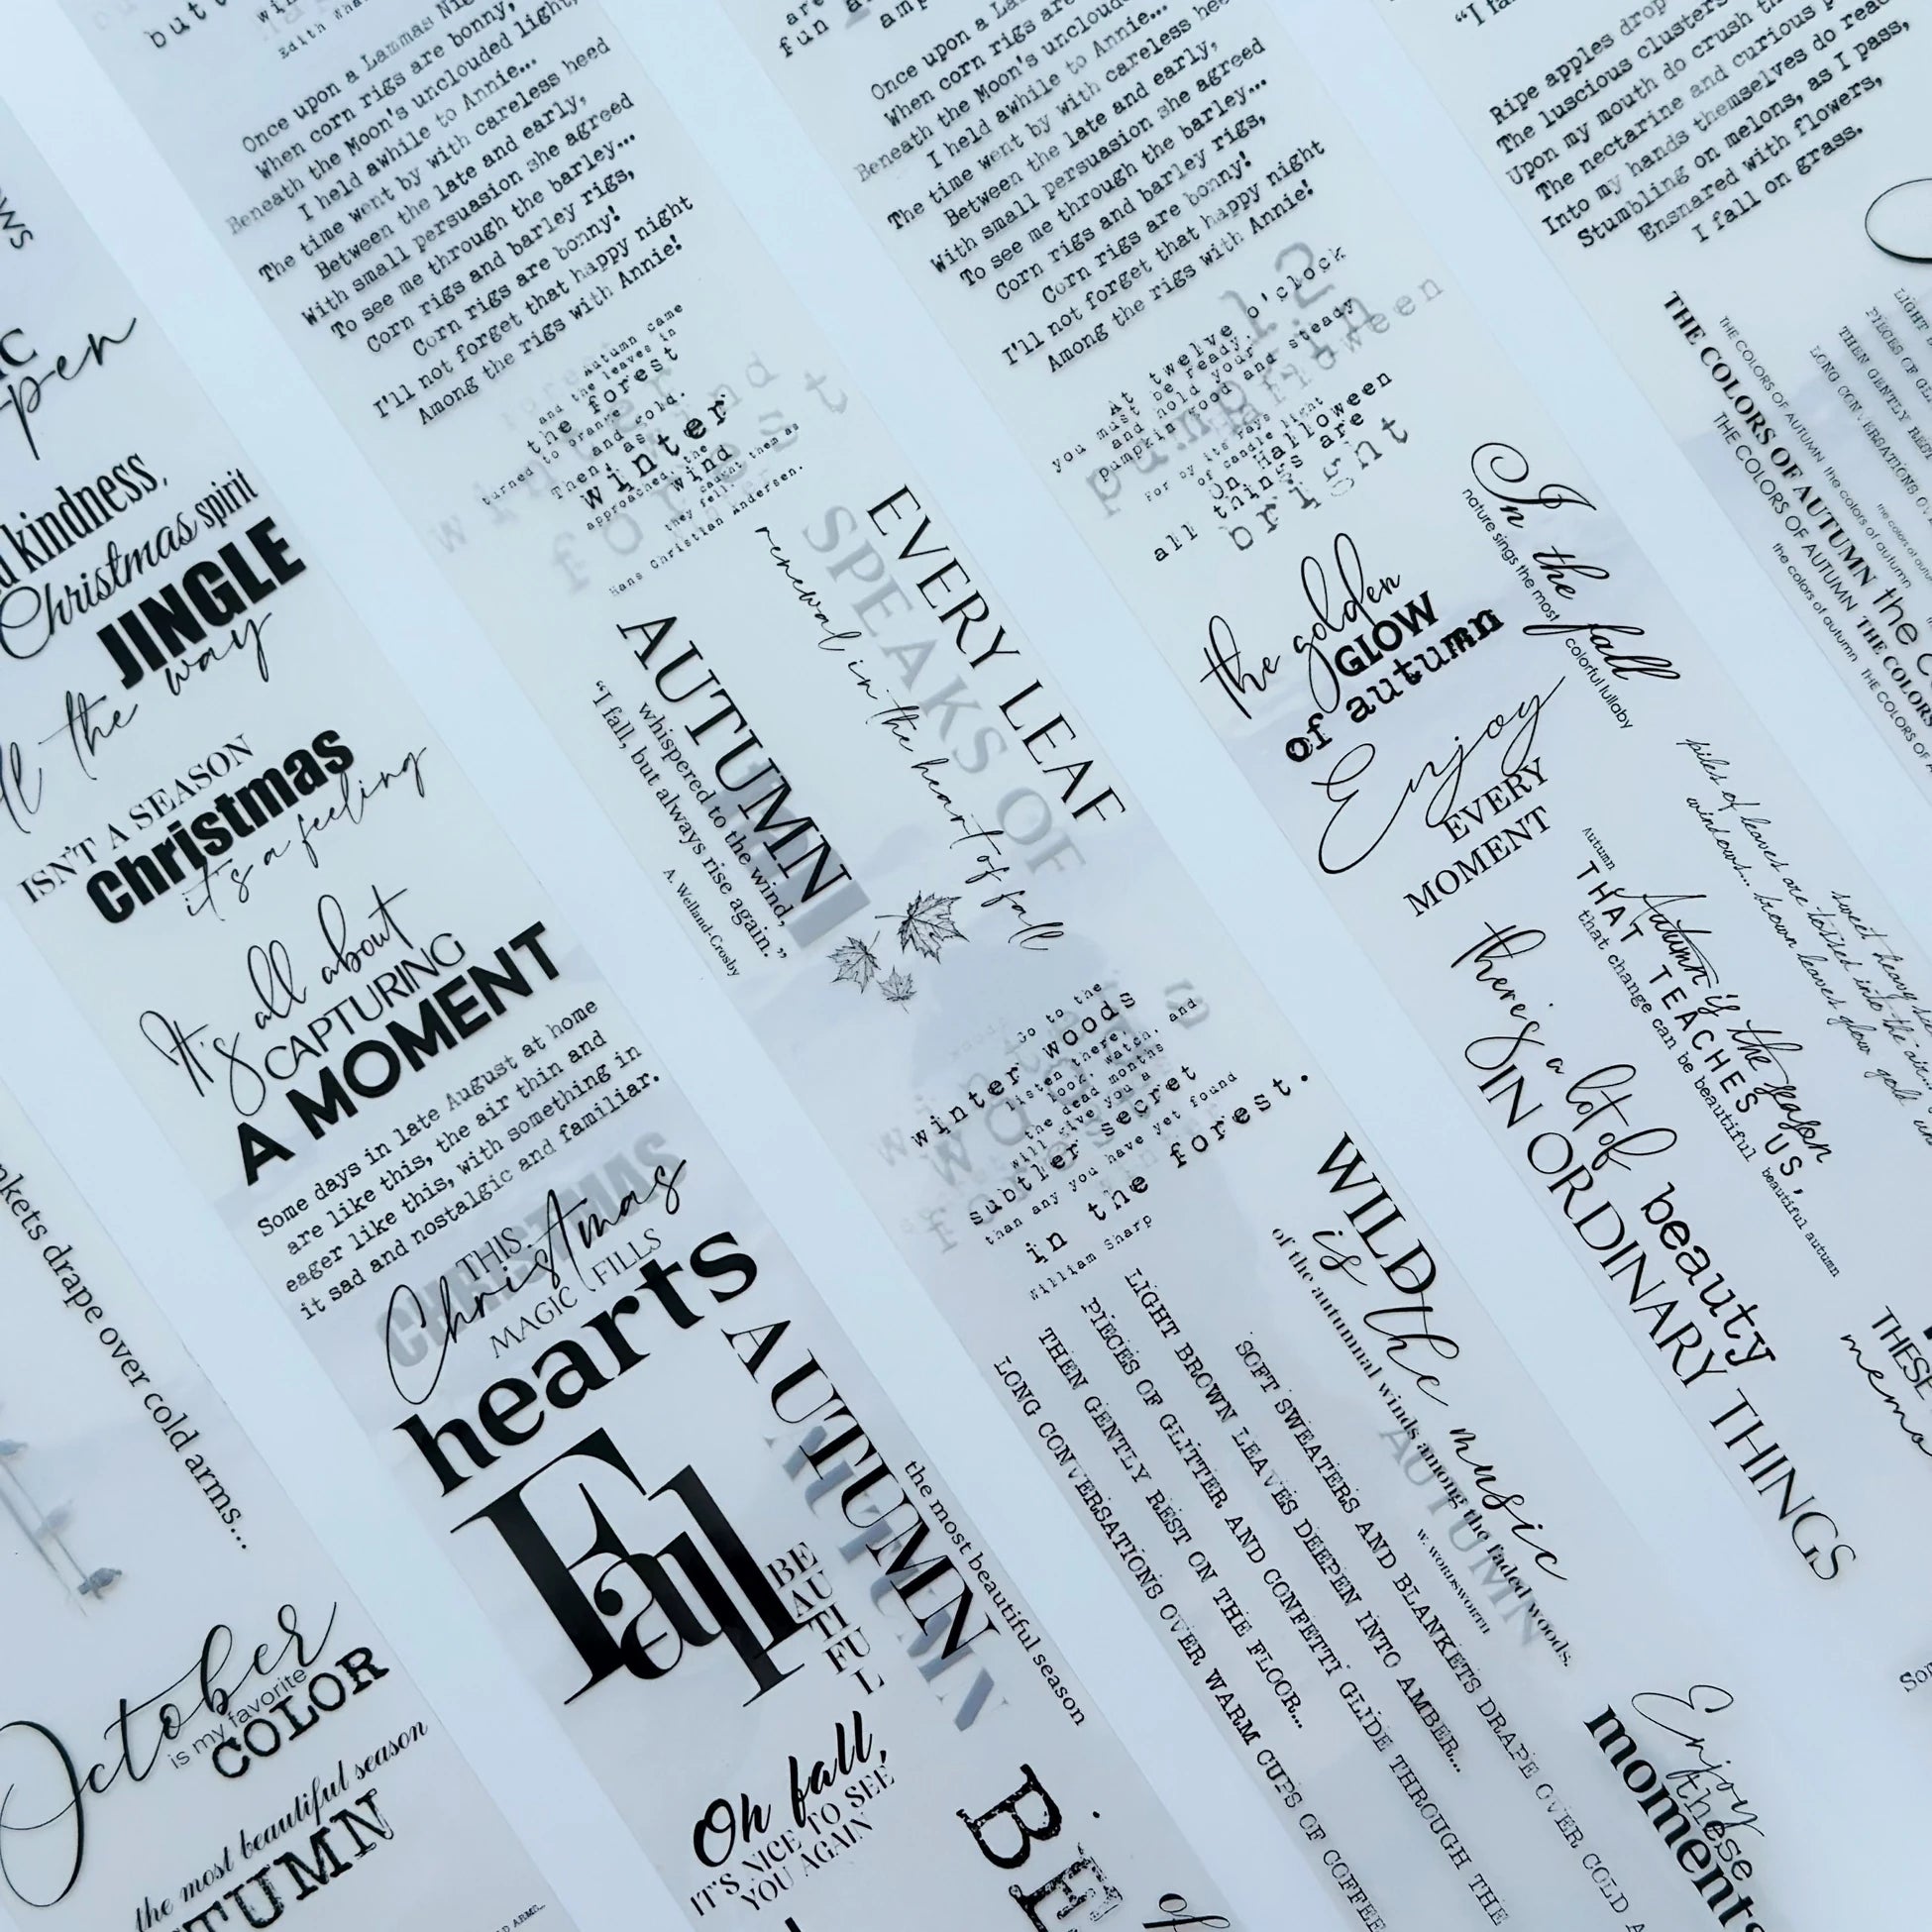 pen
kindness,
Christmas spirit
JINGLE
the way
ISN'T A SEASON
Christmas
it's a feeling
It's all about
CAPTURING
A MOMENT
Some days in late August at home
are like this, the air thin and
eager like this, with something in
it sad and nostalgic and familiar.
CHRISTMAS
THIS
Christmas
MAGIC FILLS
hearts
Fall
BE
AU
TI
FU
L
Oh fall,
IT'S NICE TO SEE
YOU AGAIN
drape over cold arms...
October
is my favorite
COLOR
the most beautiful season
Once upon a Lammas
When corn rigs are bonny,
Beneath the Moon's unclouded light,
I held awhile to Annie...
The time went by with careless heed
Between the late and early,
With small persuasion she agreed
To see me through the barley...
Corn rigs and barley rigs,
Corn rigs are bonny!
I'll not forget that happy night
Among the rigs with Annie!
Autumn came
and the leaves in
the forest
turned to orange
and gold.
Then, as
winter
approached, the
wind
caught them as
they fell.
Hans Christian Andersen.
AUTUMN
whispered to the wind,
“I fall, but always rise again.”
A. Welland-Crosby
EVERY LEAF
SPEAKS OF
renewal in the heart of fall
the most beautiful season
AUTUMN
AUTUMN
Once upon a
When corn rigs are
Beneath the Moon's
I held awhile to Annie...
The time went by with careless
Between the late and early,
With small persuasion she agreed
To see me through the barley...
Corn rigs and barley rigs,
Corn rigs are bonny!
I'll not forget that happy night
Among the rigs with Annie!
At twelve o'clock
you must be ready.
and hold your
pumpkin good and steady
For by its rays
of candle light
On Halloween
all things are
bright
the golden
GLOW
of autumn
Enjoy
EVERY
MOMENT
Go to the
winter woods
listen there,
look, watch, and
the dead months
will give you a
subtler secret
than any you have yet found
in the forest.
William Sharp
SOFT SWEATERS AND BLANKETS DRAPE OVER COLD
LIGHT BROWN LEAVES DEEPEN INTO AMBER...
PIECES OF GLITTER AND CONFETTI GLIDE THROUGH THE
THEN GENTLY REST ON THE FLOOR...
LONG CONVERSATIONS OVER WARM CUPS OF COFFEE
WILD
is the music
of the autumnal winds among the faded woods.
AUTUMN
W. WORDSWORTH
Ripe apples drop
The luscious clusters
Upon my mouth do crush
The nectarine and curious
Into my hands themselves do
Stumbling on melons, as I pass,
Ensnared with flowers,
I fall on grass.
In the fall
nature sings the most colorful lullaby
Autumn is the season
THAT TEACHES US,
that change can be beautiful
beautiful autumn
there's a lot of beauty
IN ORDINARY THINGS
piles of leaves are tossed into the air...
windows... brown leaves glow gold
THE COLORS OF AUTUMN
THE COLORS OF AUTUMN
THE COLORS OF AUTUMN
the colors of autumn
Enjoy
these
moments